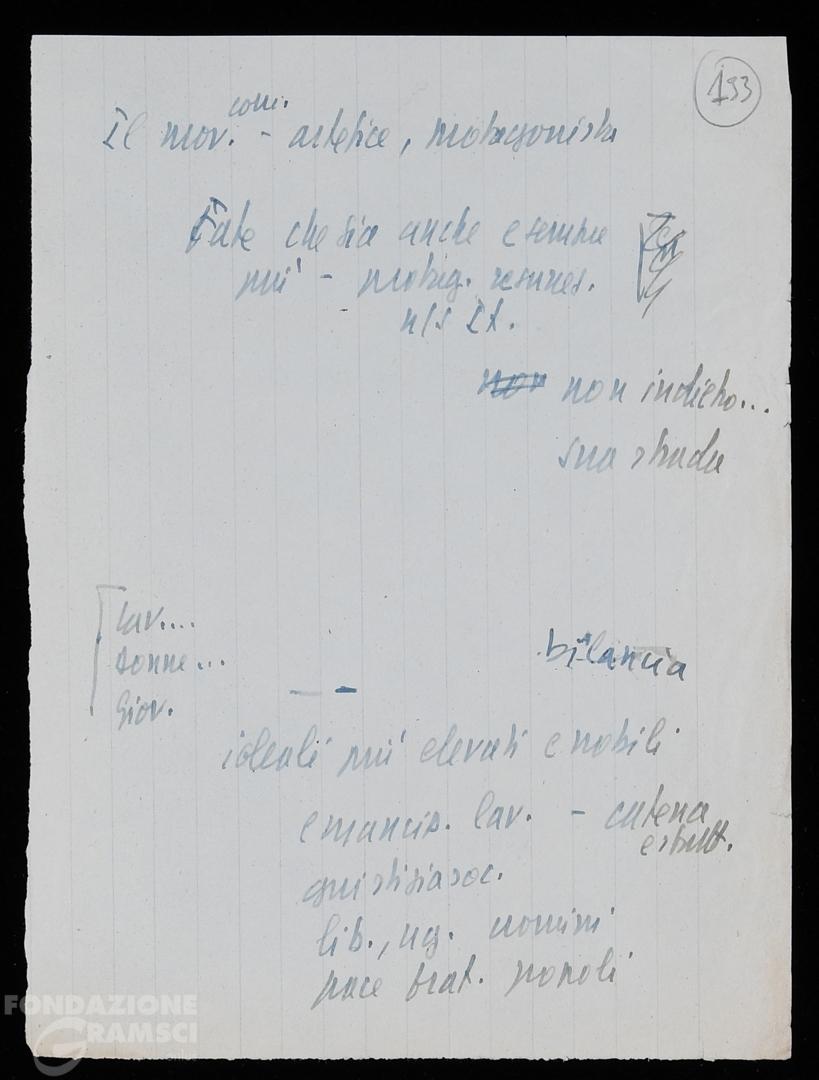 193
com.
Il mov. - artefice, protagonista
Fate che sia anche e sempre
più - protag. rennes.
n/s It.
non non indietro...
sua strada
Lav....
Donne...
Giov.
bilancia
ideali più elevati e nobili
emancip. lav. - catena
esbutt.
giustizia soc.
lib., ug. uomini
pace frat. popoli
FONDAZIONE
GRAMSCI